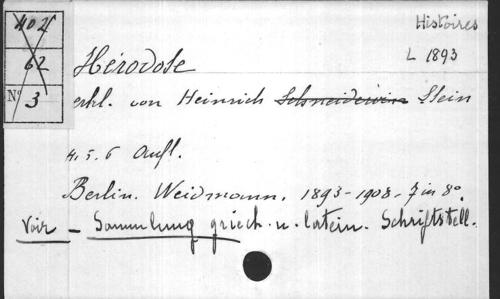 402
62
N° 3
Histoires
L 1893
Hérodote
erkl. von Heinrich Schneidewin Stein
4. 5. 6 Aufl.
Berlin. Weidmann. 1893-1908 - 7 in 8°.
Voir - Sammlung griech. u. latein. Schriftstell.